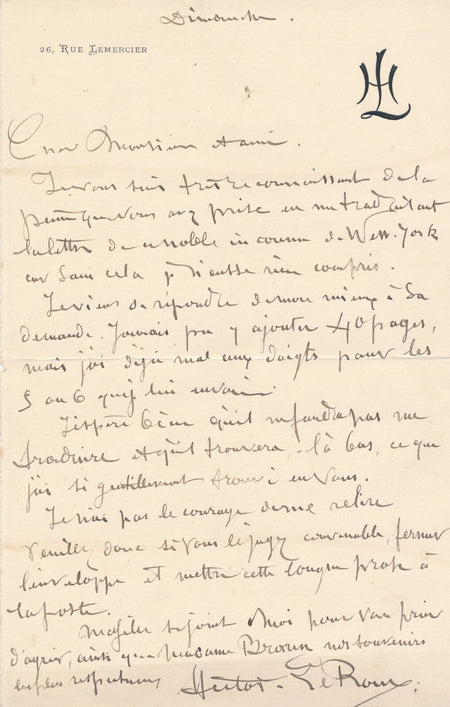 Dimanche
26, RUE LEMERCIER
HL
Cher Monsieur et ami.
Je vous suis très reconnaissant de la
peine que vous avez prise en me traduisant
la lettre de ce noble inconnu de New-York
car sans cela je n'eusse rien compris.
Je viens de répondre de mon mieux à sa
demande. J'aurais pu y ajouter 40 pages,
mais j'ai déjà mal aux doigts pour les
5 ou 6 que je lui envoie.
J'espère bien qu'il ne faudra pas me
traduire et qu'il trouvera, là bas, ce que
j'ai si gentillement trouvé en vous.
Je n'ai pas le courage de me relire
veuillez donc si vous le jugez convenable, fermer
l'enveloppe et mettre cette longue prose à
la poste.
Ma fille se joint à moi pour vous prier
d'agréer, ainsi que Madame Brown nos souvenirs
les plus respectueux
Hector - Le Roux.